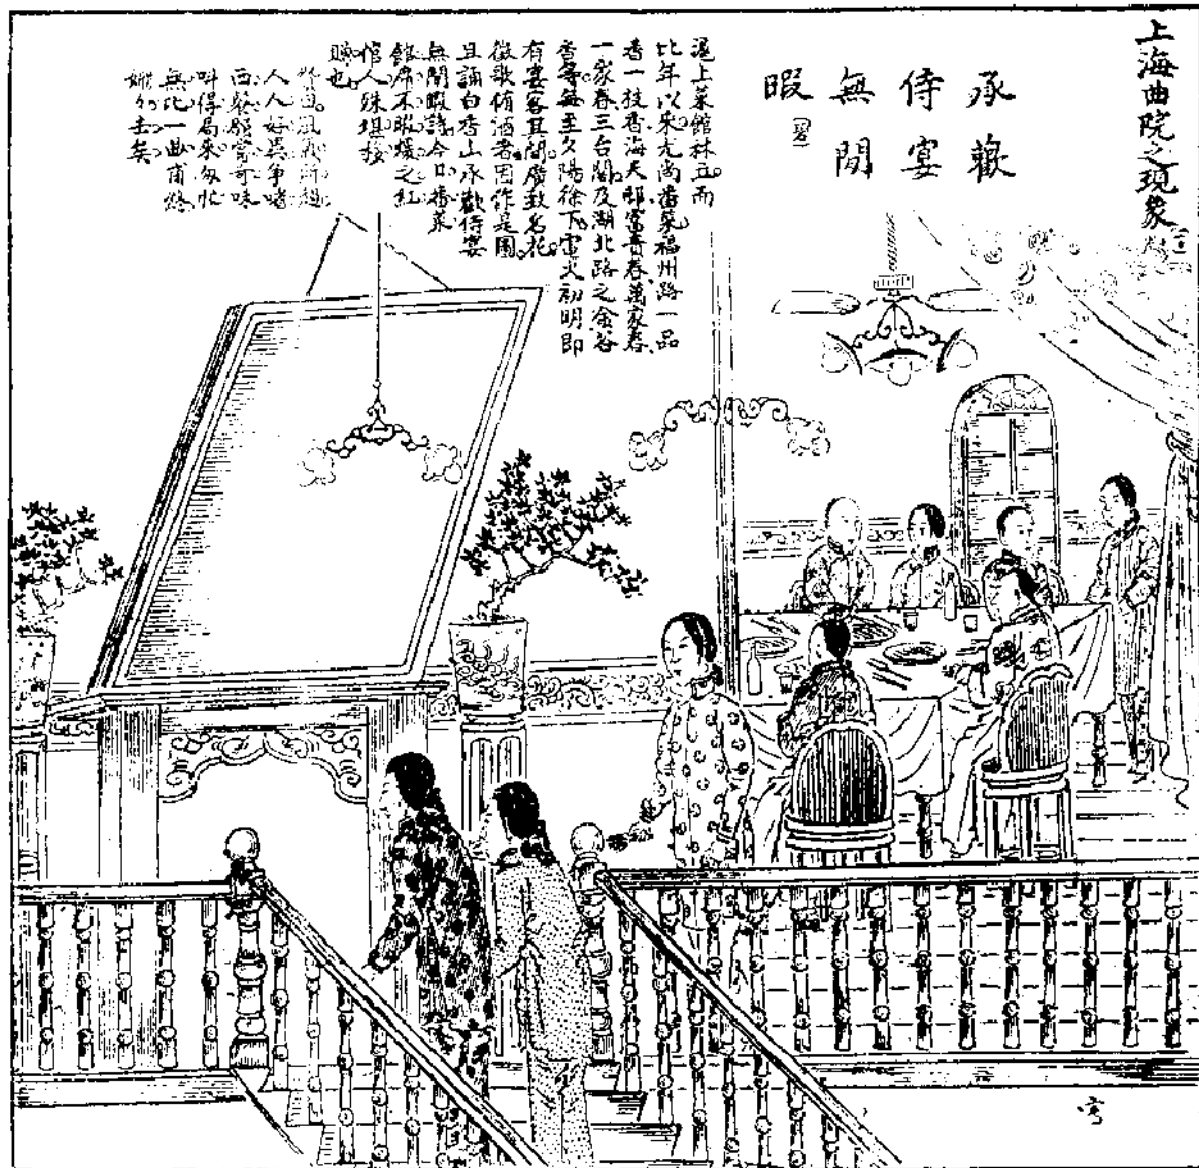 上海曲院之現象
承歡
侍宴
無閒
暇
滬上菜館林立。而
比年以來尤尚番菜福州路一品
香一枝香、海天邨、富貴春、萬家春、
一家春、三台閣、及湖北路之金谷
香等每至夕陽徐下。電火初明即
有宴客其間。廣致名花。
徵歌侑酒者因作是圖。
且誦白香山承歡侍宴
無閒暇詩。今日番菜
館席不暇煖之紅
倌人殊堪移
贈也。
風氣所趨。
人人好異爭嗜
西餐。願嘗奇味
叫得局來匆忙
無比一曲甫終。
姍々去矣